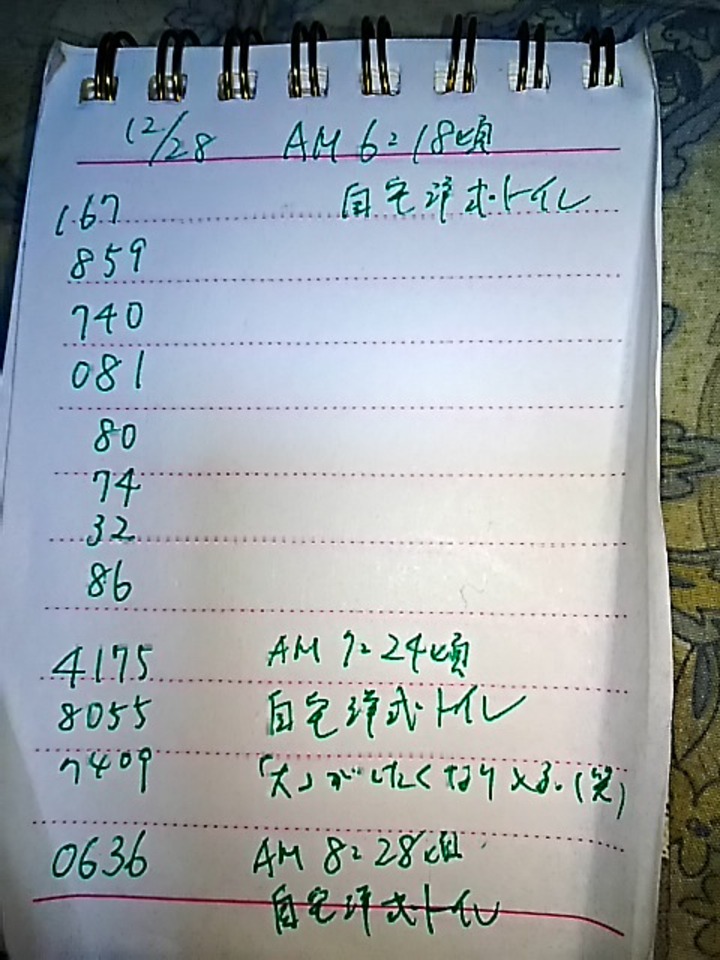 12/28 AM 6:18頃
167 自宅洋式トイレ
859
740
081
80
74
32
86
4175 AM 7:24頃
8055 自宅洋式トイレ
7409 「大」がしたくなり入る。(笑)
0636 AM 8:28頃
自宅洋式トイレ